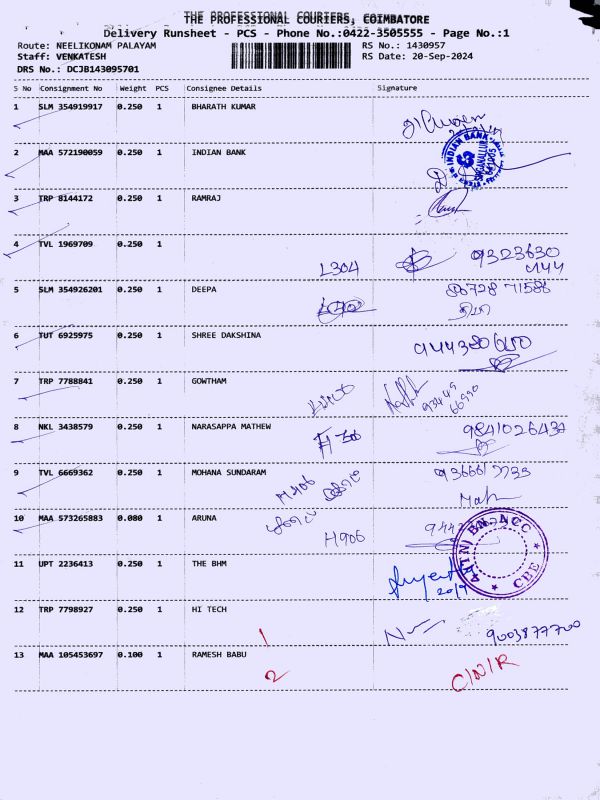 THE PROFESSIONAL COURIERS, COIMBATORE
Delivery Runsheet - PCS - Phone No.:0422-3505555 - Page No.:1
Route: NEELIKONAM PALAYAM
RS No.: 1430957
Staff: VENKATESH
RS Date: 20-Sep-2024
DRS No.: DCJB143095701
S No Consignment No Weight PCS Consignee Details Signature
1 SLM 354919917 0.250 1 BHARATH KUMAR
2 MAA 572190059 0.250 1 INDIAN BANK
INDIAN BANK
3 TRP 8144172 0.250 1 RAMRAJ
4 TVL 1969709 0.250 1
L304 9323630
444
5 SLM 354926201 0.250 1 DEEPA
86728 71586
6 TUT 6925975 0.250 1 SHREE DAKSHINA
7 TRP 7788841 0.250 1 GOWTHAM
93449
66990
8 NKL 3438579 0.250 1 NARASAPPA MATHEW
9 TVL 6669362 0.250 1 MOHANA SUNDARAM
H906
10 MAA 573265883 0.080 1 ARUNA
H906
BN NCC
CBE
11 UPT 2236413 0.250 1 THE BHM
12 TRP 7798927 0.250 1 HI TECH
1
9003877700
13 MAA 105453697 0.100 1 RAMESH BABU
2 C/N/R